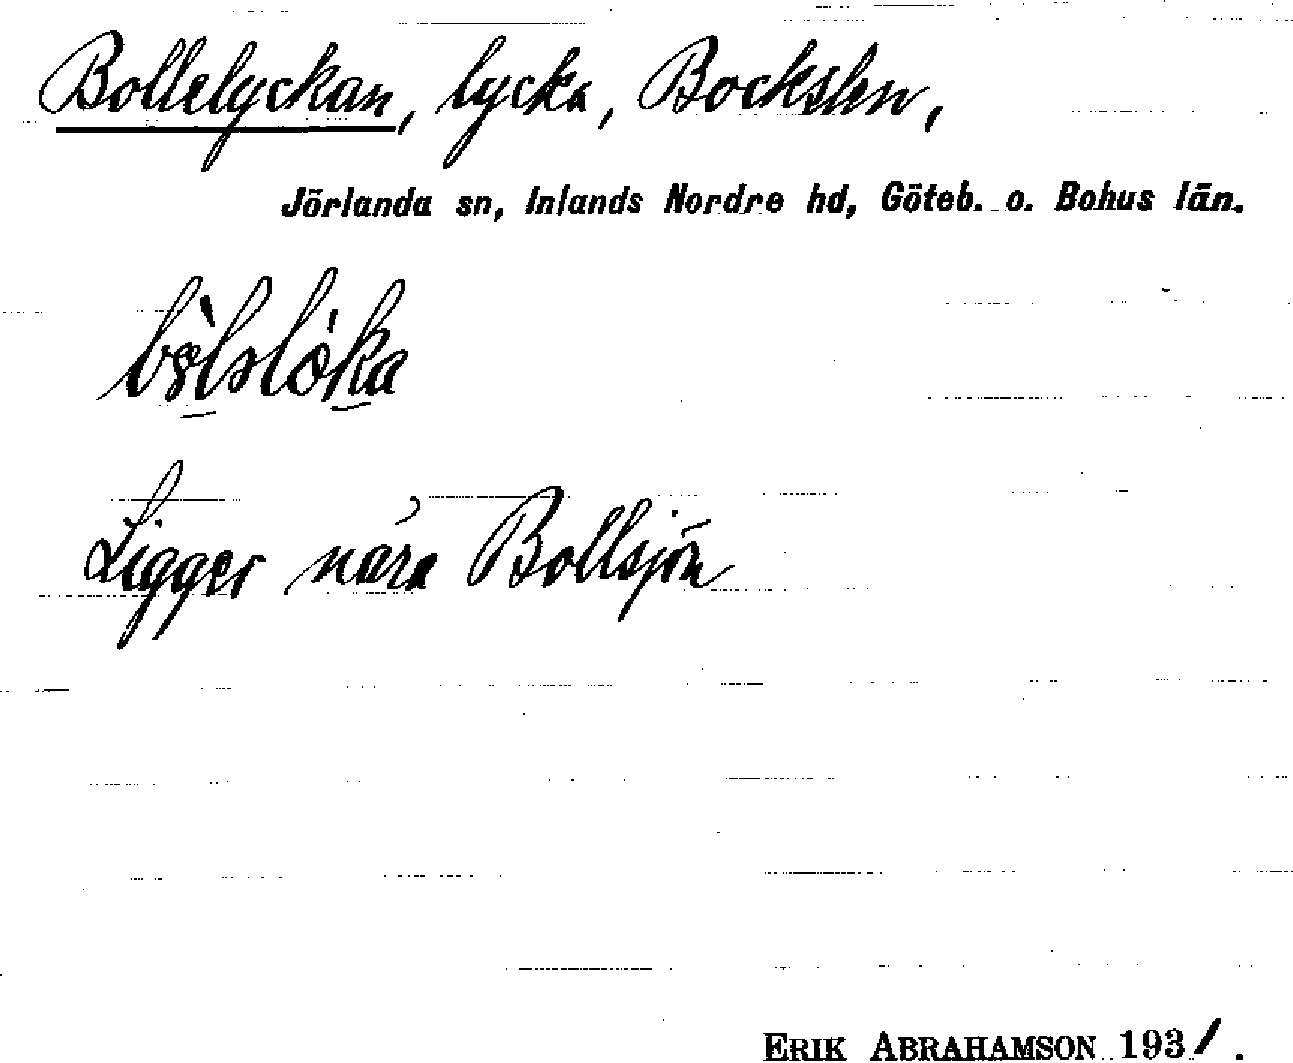 Bollelyckan, lycka, Bockslen,
Jörlanda sn, Inlands Nordre hd, Göteb. o. Bohus län.
Ligger nära Bollsjön
ERIK ABRAHAMSON 1931.